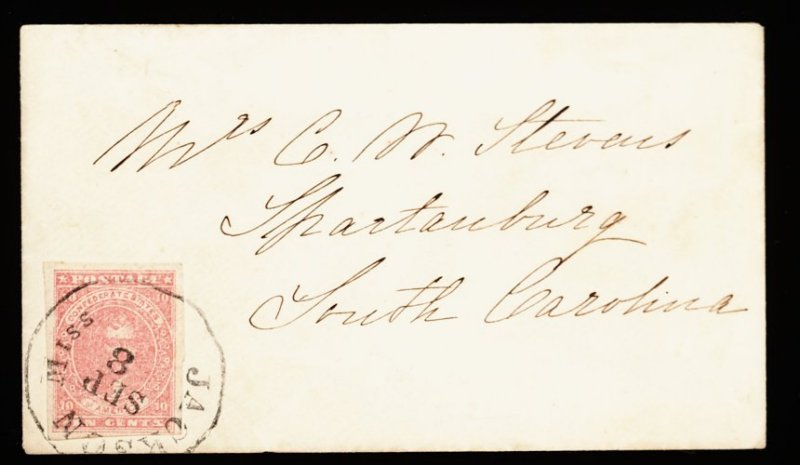 Mrs C. W. Stevens
Spartanburg
South Carolina
POSTAGE
CONFEDERATE STATES
10 10
10 10
TEN CENTS
JACKSON MISS
8
SEP